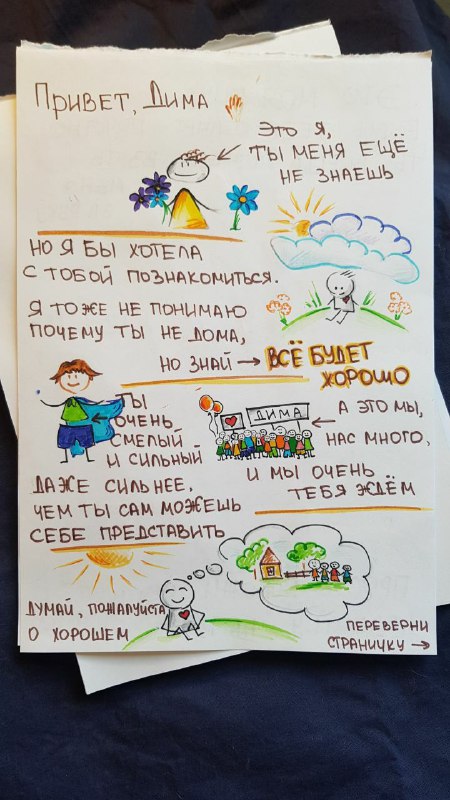 ПРИВЕТ, ДИМА
ЭТО Я,
ТЫ МЕНЯ ЕЩЁ
НЕ ЗНАЕШЬ
НО Я БЫ ХОТЕЛА
С ТОБОЙ ПОЗНАКОМИТЬСЯ.
Я ТОЖЕ НЕ ПОНИМАЮ
ПОЧЕМУ ТЫ НЕ ДОМА,
НО ЗНАЙ → ВСЁ БУДЕТ
ХОРОШО
ТЫ
ОЧЕНЬ
СМЕЛЫЙ
И СИЛЬНЫЙ
ДАЖЕ СИЛЬНЕЕ,
ЧЕМ ТЫ САМ МОЖЕШЬ
СЕБЕ ПРЕДСТАВИТЬ
ДИМА
А ЭТО МЫ,
НАС МНОГО,
И МЫ ОЧЕНЬ
ТЕБЯ ЖДЁМ
ДУМАЙ, ПОЖАЛУЙСТА
О ХОРОШЕМ
ПЕРЕВЕРНИ
СТРАНИЧКУ →